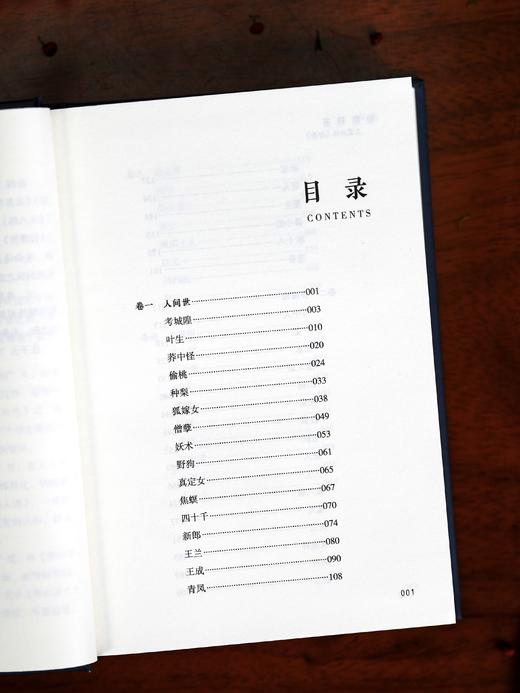 目录
CONTENTS
卷一 人间世…………001
考城隍…………003
叶生…………010
荞中怪…………020
偷桃…………024
种梨…………033
狐嫁女…………038
僧孽…………049
妖术…………053
野狗…………061
真定女…………065
焦螟…………067
四十千…………070
新郎…………074
王兰…………080
王成…………090
青凤…………108
001